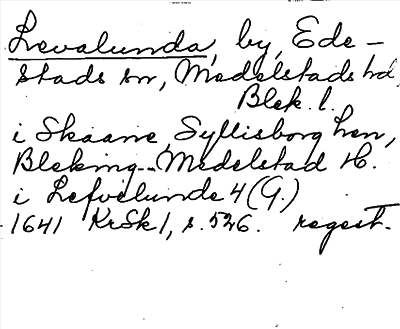 Levalunda, by, Ede-
stads sn, Medelstads hd,
Blek. l.
i Skaane, Syllisborg hen,
Bleking--Medelstad H.
i Lefvelunde 4 (G.)
1641 KrSk 1, s. 526. regest.